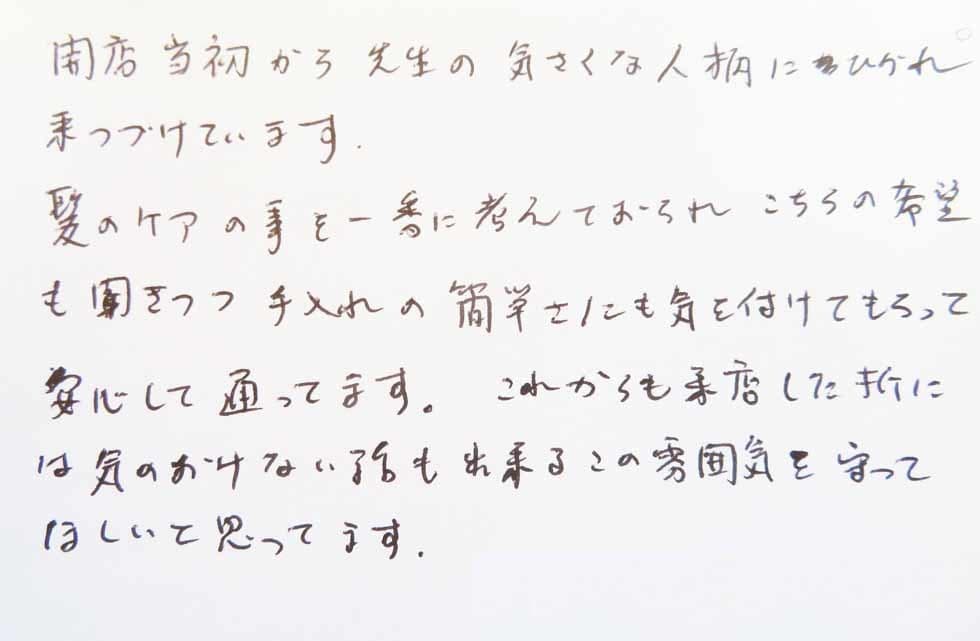 開店当初から先生の気さくな人柄にひかれ
来つづけています.
髪のケアの事を一番に考えておられ こちらの希望
も聞きつつ 手入れの簡単さにも気を付けてもらって
安心して通ってます。 これからも来店した折に
は気のおけない話も出来るこの雰囲気を守って
ほしいと思ってます.